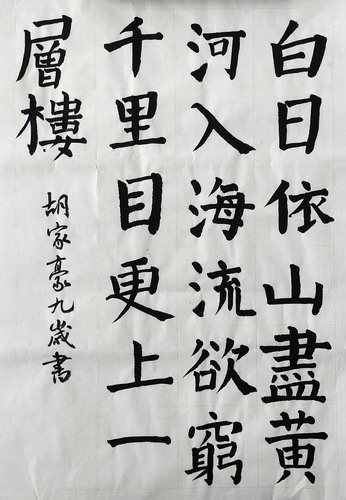 白日依山盡黃
河入海流欲窮
千里目更上一
層樓
胡家豪九歲書